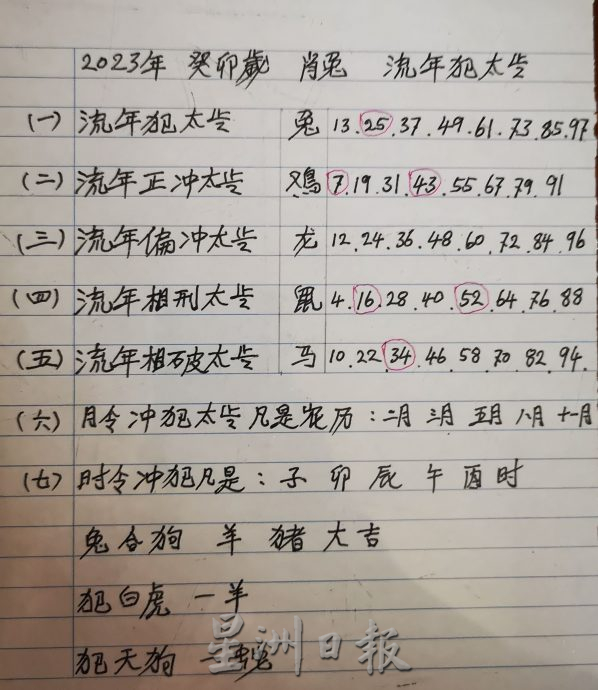 2023年 癸卯歲 肖兔 流年犯太岁
(一) 流年犯太岁 兔 13.25.37.49.61.73.85.97
(二) 流年正冲太岁 鸡 7.19.31.43.55.67.79.91
(三) 流年偏冲太岁 龙 12.24.36.48.60.72.84.96
(四) 流年相刑太岁 鼠 4.16.28.40.52.64.76.88
(五) 流年相破太岁 马 10.22.34.46.58.70.82.94.
(六) 月令冲犯太岁凡是农历：二月 三月 五月 八月 十一月
(七) 时令冲犯凡是：子 卯 辰 午 酉时
兔合狗 羊 猪 大吉
犯白虎 一羊
犯天狗 一
星洲日報